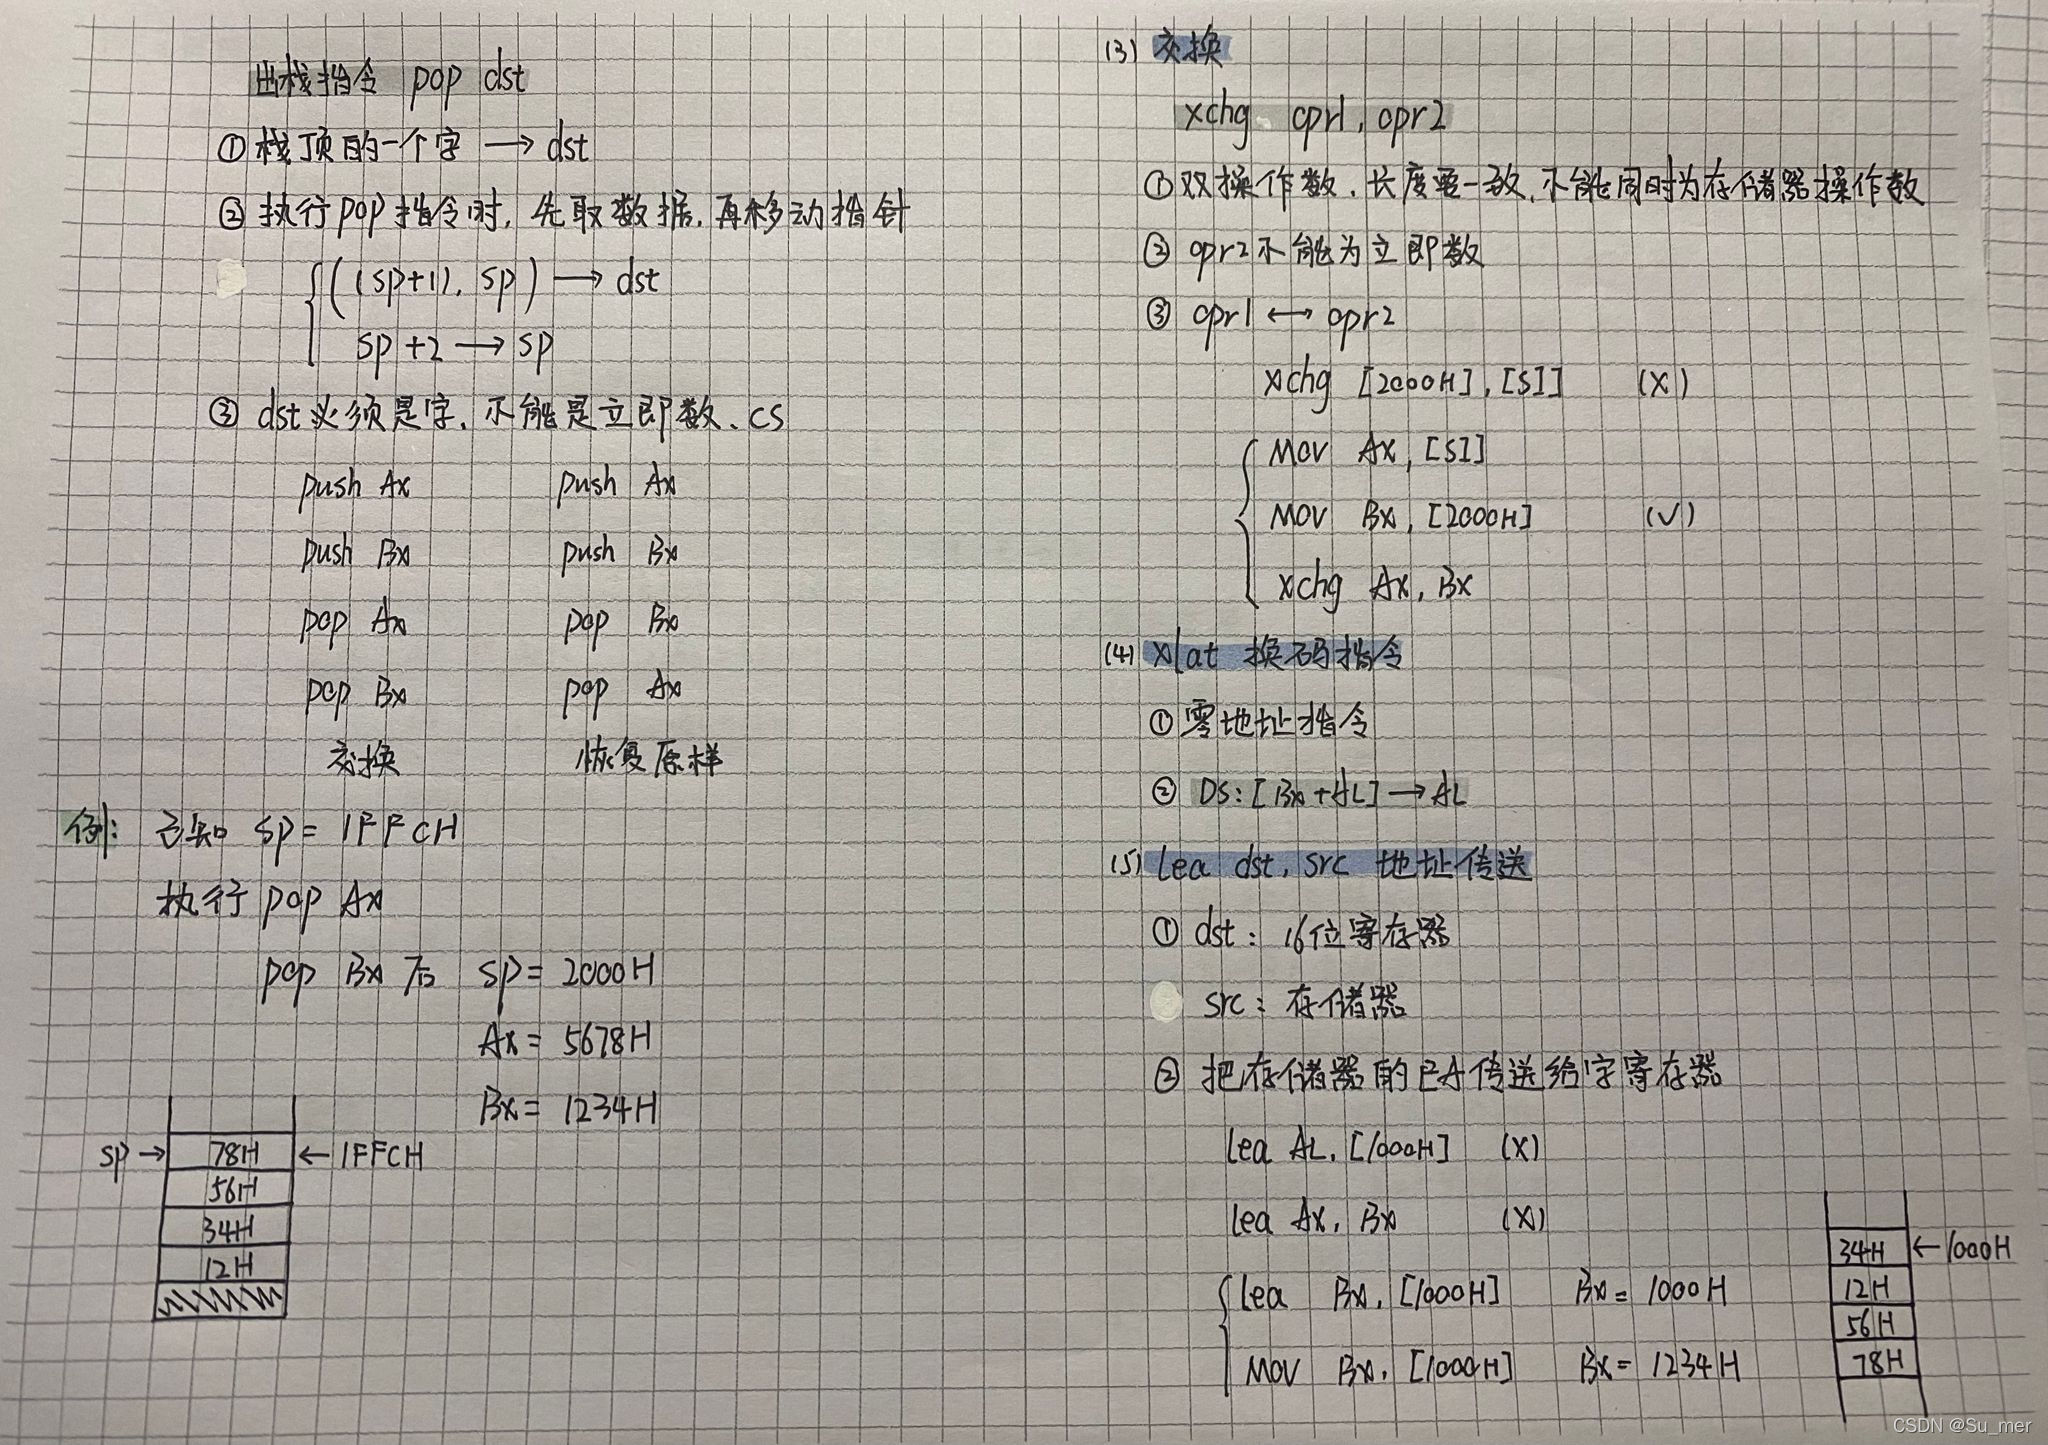 出栈指令 pop dst
① 栈顶的一个字 → dst
② 执行pop指令时, 先取数据, 再移动指针
((sp+1), sp) → dst
sp+2 → sp
③ dst必须是字, 不能是立即数、CS
push Ax push Ax
push Bx push Bx
pop Ax pop Bx
pop Bx pop Ax
交换 恢复原样
例: 已知 sp = 1FFCH
执行 pop Ax
pop Bx 后 sp = 2000H
Ax = 5678H
Bx = 1234H
sp → 78H ← 1FFCH
56H
34H
12H
(3) 交换
xchg opr1, opr2
① 双操作数、长度要一致、不能同时为存储器操作数
② opr2不能为立即数
③ opr1 ↔ opr2
xchg [2000H], [SI] (X)
MOV Ax, [SI]
MOV Bx, [2000H] (√)
xchg Ax, Bx
(4) xlat 换码指令
① 零地址指令
② DS:[Bx+AL] → AL
(5) lea dst, src 地址传送
① dst: 16位寄存器
src: 存储器
② 把存储器的EA传送给字寄存器
lea AL, [1000H] (X)
lea Ax, Bx (X)
lea Bx, [1000H] Bx = 1000H
MOV Bx, [1000H] Bx = 1234H
34H ← 1000H
12H
56H
78H
CSDN @Su_mer